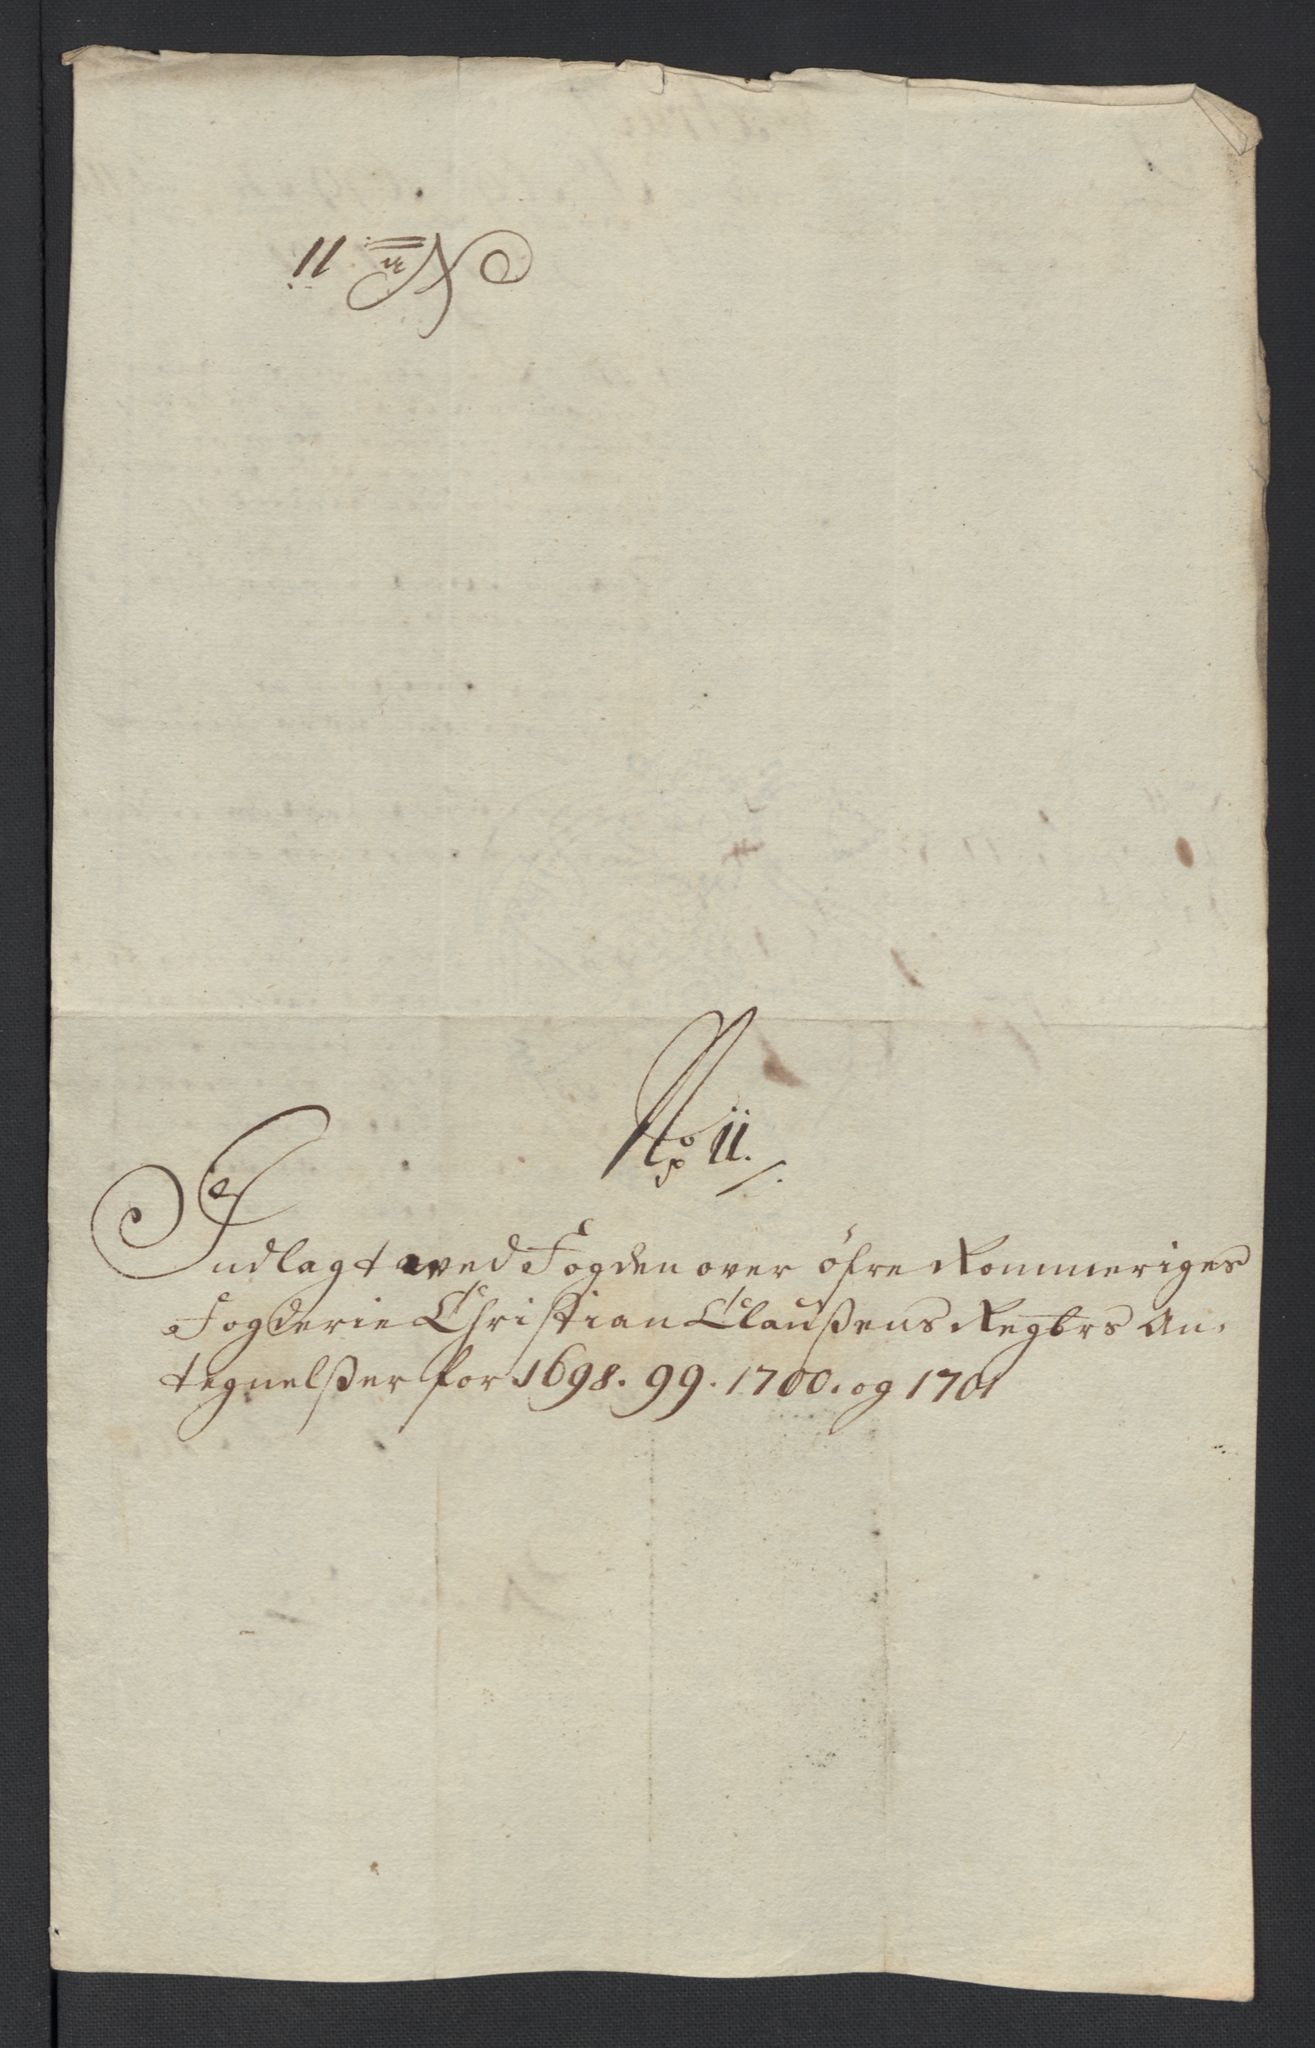 No 11
No 11.
Indlagt ved Fogden over öfre Rommeriges
Fogderie Christian Claußens Regbrs An-
tegnelßer for 1698. 99. 1700. og 1701